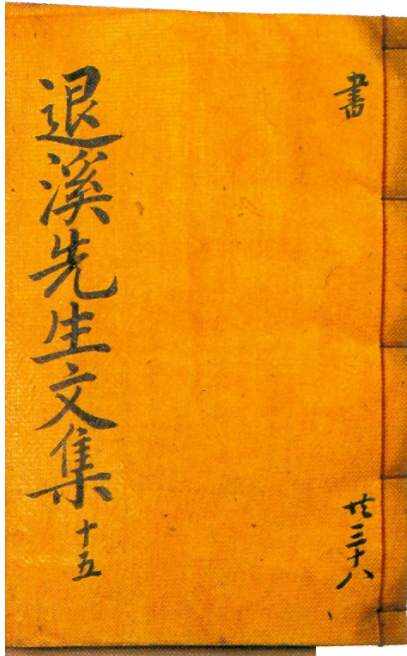 書
共三十八
退溪先生文集 十五